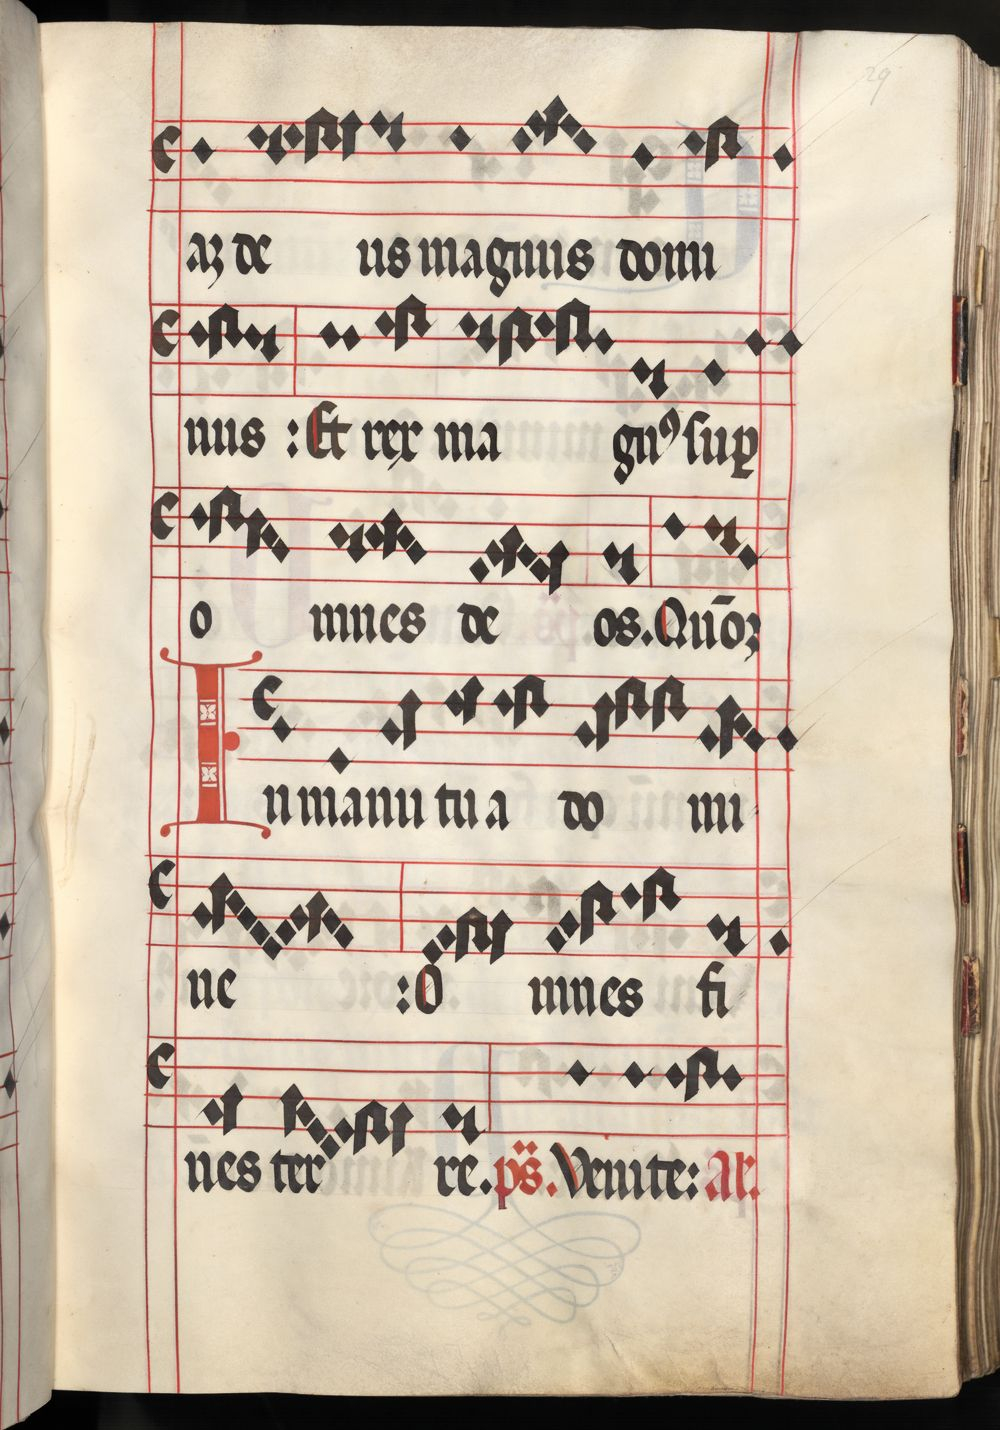 29
aꝝ de us magnus domi
nus : Et rex ma gnꝰ suꝑ
o mnes de os. Qūoꝝ
In manu tu a do mi
ne : O mnes fi
nes ter re. ps. Venite: Ar.